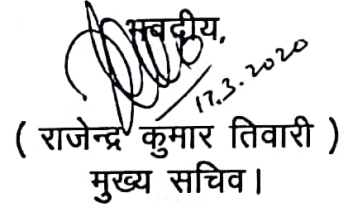 भवदीय,
17.3.2020
( राजेन्द्र कुमार तिवारी )
मुख्य सचिव।